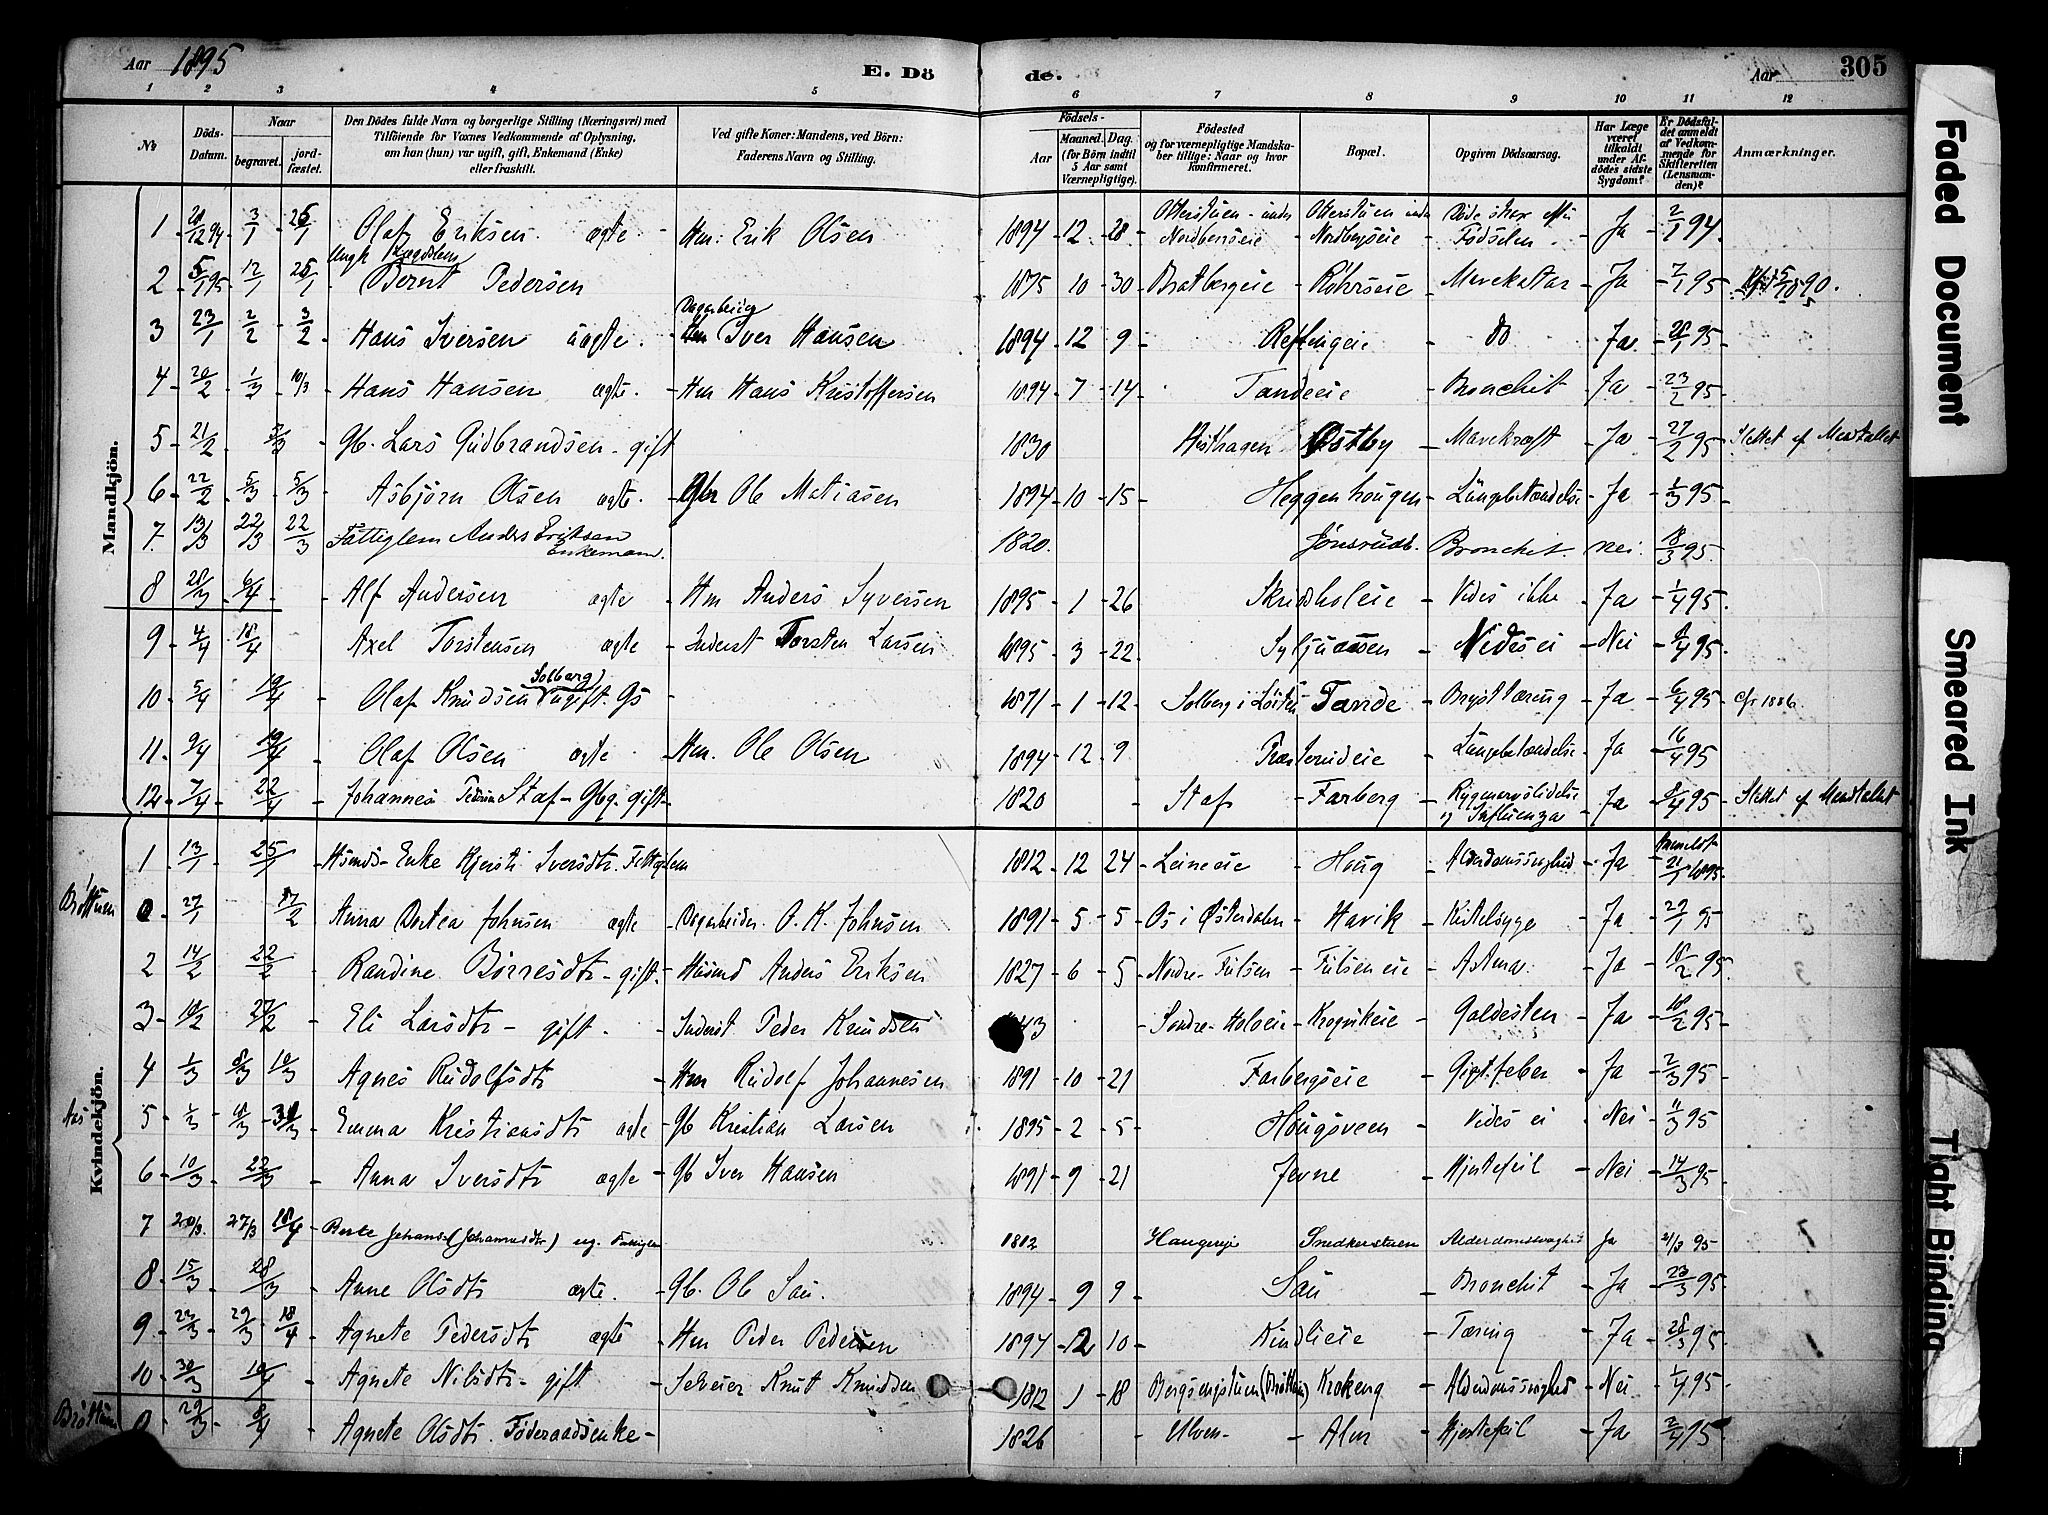 Aar 1895
E. Döde.
Aar
305
1 2 3 4 5 6 7 8 9 10 11 12
No
Döds-Datum.
Naar begravet. jordfæstet.
Den Dödes fulde Navn og borgerlige Stilling (Næringsvei) med Tilföiende for Voxnes Vedkommende af Oplysning, om han (hun) var ugift, gift, Enkemand (Enke) eller fraskilt.
Ved gifte Koner: Mandens, ved Börn: Faderens Navn og Stilling.
Födsels-
Aar Maaned. Dag. (for Börn indtil 5 Aar samt Værnepligtige).
Födested og for værnepligtige Mandskaber tillige: Naar og hvor konfirmeret.
Bopæl.
Opgiven Dödsaarsag.
Har Læge været tilkaldt under Afdödes sidste Sygdom?
Er Dödsfaldet anmeldt af Vedkommende for Skifteretten (Lensmanden)?
Anmærkninger.
Mandkjön.
1 28/12 94 3/1 26/1 Olaf Eriksen ægte Hm: Erik Olsen 1894 12 28 Otterstuen under Nordbergseie Otterstuen under Nordbergseie Döde strax efter Födselen Ja 2/1 94
2 5/1 95 12/1 25/1 Ungk Bernt Pedersen 1875 10 30 Bratbergeie Röhrseie Mavekatar Ja 7/1 95
3 23/1 2/2 3/2 Hans Iversen uægte Dagarbeider Iver Hansen 1894 12 9 Reflingeie do Ja 28/1 95
4 20/2 1/3 10/3 Hans Hansen ægte Hm Hans Kristoffersen 1894 7 14 Tandeeie Bronchit Ja 23/2 95
5 21/2 5/3 Gb. Lars Gudbrandsen gift 1830 Östby Mavekræft Ja 27/2 95 Slettet af Mantallet
6 22/2 5/3 5/3 Asbjörn Olsen ægte Gbr Ole Matiasen 1894 10 15 Heggenhougen Lungebetændelse Ja 1/3 95
7. 13/3 22/3 22/3 Fattiglem Anders Eriksen Enkemand. 1820. Jönsrudb. Bronchit nei 18/3 95.
8 28/3 6/4 Alf Andersen ægte Hm Anders Syversen 1895 1 26 Skredholeie Vides ikke Ja 1/4 95
9 4/4 18/4 Axel Torstensen ægte Inderst Torsten Larsen 1895 3 22 Syljuaasen Vides ei Nei 8/4 95
10 5/4 19/4 Olaf Knudsen (Solberg) ugift. Gs 1871 1 12 Solberg i Löiten Tande Brysttæring Ja 6/4 95 cfr 1886
11 9/4 19/4 Olaf Olsen ægte Hm. Ole Olsen 1894 12 9 Præsterudeie Lungebetændelse Ja 16/4 95
12 7/4 22/4 Johannes Pedersen Staf Gbg. gift 1820 Staf Farberg Rygmarvslidelse og Influenza Ja 8/4 95 Slettet af Mandtallet
Kvindekjön.
1 13/1 25/1 Husmds Enke Kjersti Iversdtr. Fattiglem 1812 12 24 Leineeie Houg Alderdomssvaghed Ja Anmeldt 21/1 1895
Bröttum 0 27/1 17/2 Anna Dortea Johnsen ægte Dagarbeider O. K. Johnsen 1891 5 5 Os i Österdalen Havik Kirtelsyge Ja 29/1 95
2 14/2 22/2 Randine Börresdtr gift. Husmd Anders Eriksen 1827 6 5 Nordre Fulsen Fulseneie Astma Ja 18/2 95
3 10/2 27/2 Eli Larsdtr gift. Inderst Peder Knudsen 43 Söndre Holseie Krogvikeie Galdesten Ja 18/2 95
4 1/3 8/3 10/3 Agnes Rudolfsdtr Hm Rudolf Johannesen 1891 10 21 Farbergseie Gigtfeber Ja 2/3 95
Aas 5 1/3 31/3 Emma Kristiansdtr ægte Gb Kristian Larsen 1895 2 5 Hougsveen Vides ei Nei 11/3 95
6 10/3 22/3 Anna Iversdtr ægte Gb Iver Hansen 1891 9 21 Jevne Hjertefeil Nei 14/3 95
7 20/3. 27/3 18/4 Berte Johans (Johannesdtr) ug. Fattiglem 1812 Haugereje Snedkerstuen Alderdomssvaghed Ja 21/3 95
8 15/3 28/3 Anne Olsdtr ægte. Gb. Ole Sau. 1894 9 9 Sau Bronchit Ja 23/3 95
9 23/3 29/3 18/4 Agnete Pedersdtr ægte Hm Peder Pedersen 1894 12 10 Kindlieie Tæring Ja 28/3 95
10 30/3 10/4 Agnete Nilsdtr gift Selveier Knut Knudsen 1812 1 18 Bergsengstuen (Bröttum) Krokeng Alderdomssvaghed Nei 1/4 95
Bröttum 0 29/3 8/4 Agnete Olsdtr. Föderaadsenke 1826 Ulven Alm Hjertefeil Ja 2/4 95
Faded Document
Smeared Ink
Tight Binding